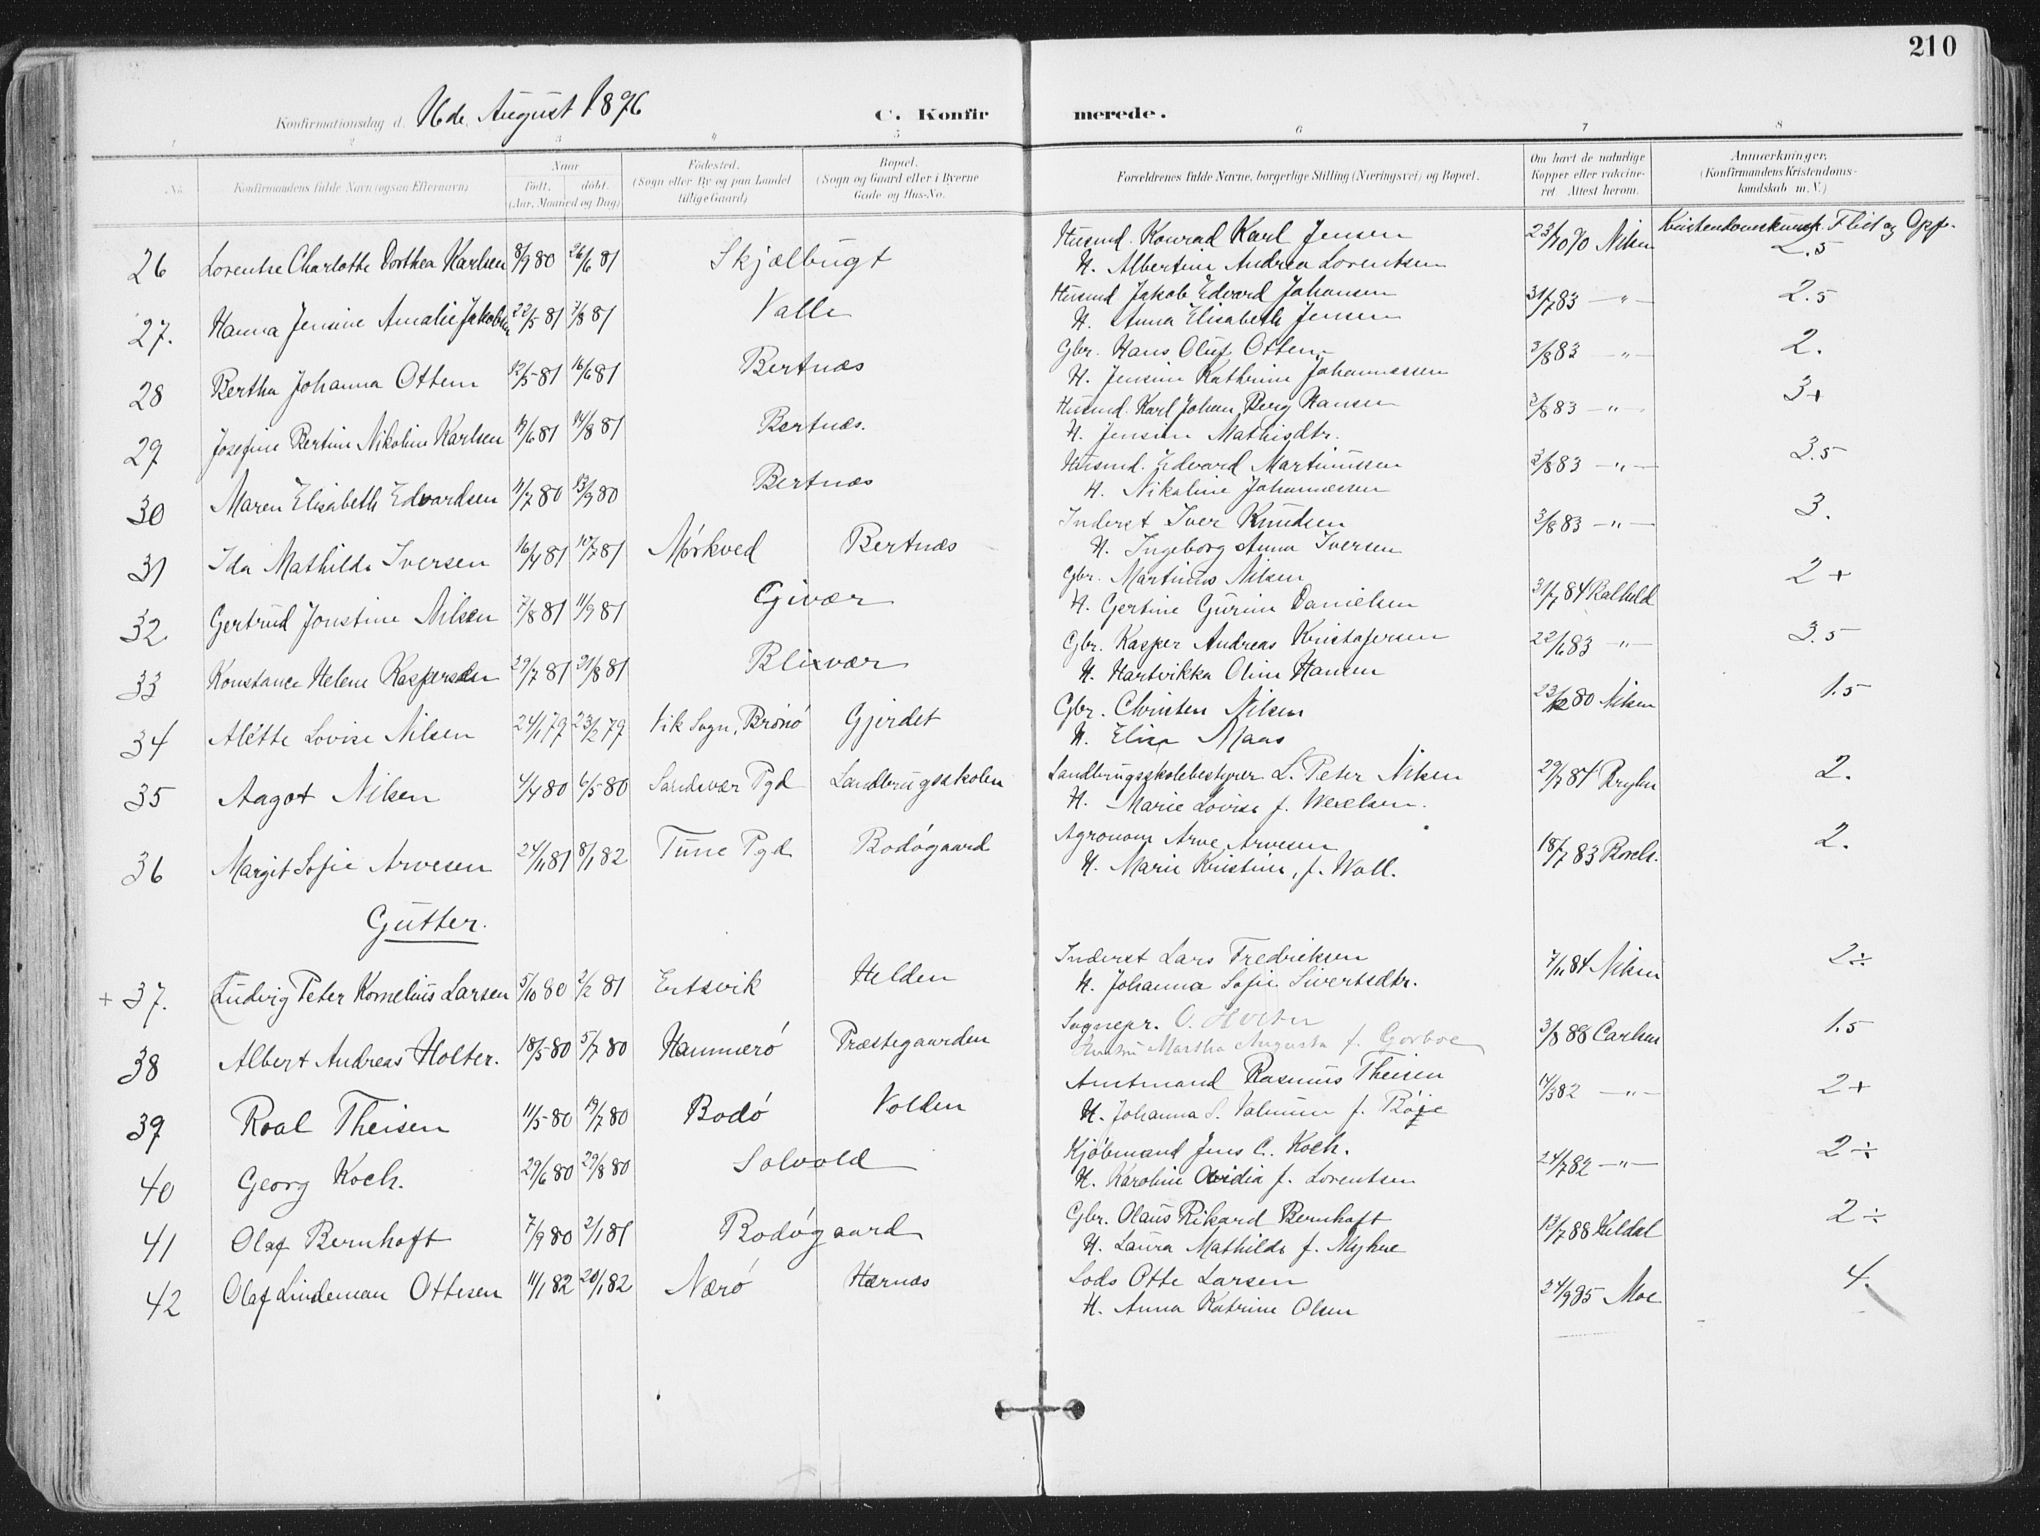 210
Konfirmationsdag d. 16de August 1896 C. Konfirmerede.
1 2 3 4 5 6 7 8
No. Konfirmandens fulde Navn (ogsaa Efternavn) Naar født. døbt. (Aar, Maaned og Dag) Fødested. (Sogn eller By og paa Landet tillige Gaard) Bopæl. (Sogn og Gaard eller i Byerne Gade og Hus-No. Forældrenes fulde Navne, borgerlige Stilling (Næringsvei) og Bopæl. Om havt de naturlige Kopper eller vakcineret. Attest herom. Anmærkninger. (Konfirmandens Kristendomskundskab m. V.)
Kristendomskundsk. Flid og Opf.
26 Lorentse Charlotte Dorthea Karlsen 8/9 80 26/6 81 Skjælbugt Husmd. Konrad Karl Jensen 23/10 Nilsen 2.5
H. Albertine Andrea Lorentsen
27. Hanna Jensine Amalie Jakobsen 22/5 81 7/8 81 Valle Husmd Jakob Edvard Johansen 31/7 83 —"— 2.5
H. Anna Elisabeth Jensen
28 Bertha Johanna Ottem 12/5 81 16/6 81 Bertnæs Gbr. Hans Oluf Ottem 3/8 83 —"— 2.
H. Jensine Kathrine Johannessen
29 Josefine Bertine Nikoline Karlsen 19/6 81 14/8 81 Bertnæs. Husmd. Karl Johan Berg Hansen 3/8 83 —"— 3+
H. Jensine Mathisdtr.
30 Maren Elisabeth Edvardsen 11/7 80 23/9 80 Bertnæs Husmd. Edvard Martinussen 3/8 83 —"— 3.5
H. Nikoline Johannessen
31 Ida Mathilde Iversen 16/4 81 10/7 81 Mørkved Bertnæs Inderst Iver Knudsen 3/8 83 —"— 3.
H. Ingeborg Anna Iversen
32 Gertrud Jonstine Nilsen 7/8 81 11/9 81 Givær Gbr. Martinus Nilsen 31/7 84 2+
H. Gertine Gurine Danielsen
33 Konstance Helene Kaspersen 29/7 81 21/8 81 Blixvær Gbr. Kasper Andreas Kristofersen 22/6 83 —"— 3.5
H. Hartvikka Oline Hansen
34 Alétte Lovise Nilsen 24/1 79 23/2 79 Vik Sogn, Brønø Gjerdet Gbr. Christen Nilsen 23/2 80 Nilsen 1.5
H. Elisa Maas
35 Aagot Nilsen 4/4 80 6/5 80 Sandevær Pgd Landbrugsskolen Landbrugsskolebestyrer L. Peter Nilsen 29/7 84 2.
H. Marie Lovise f. Wexelsen.
36 Margit Sofie Arvesen 24/11 81 8/1 82 Tune Pgd Bodøgaard Agronom Arve Arvesen 18/7 83 2.
H. Marie Kristine, f. Woll.
Gutter.
+ 37. Ludvig Peter Kornelius Larsen 5/10 80 2/2 81 Evtsvik Helden Inderst Lars Fredriksen 7/11 84 Nilsen 2÷
H. Johanna Sofie Sivertsdtr.
38 Albert Andreas Holter. 18/5 80 5/7 80 Hammerø Præstegaarden Sognepr. O. Holter 3/8 88 Carlsen 1.5
Hustru Martha Augusta f. Gorboe
39 Roal Theisen 11/5 80 19/7 80 Bodø Volden Amtmand Rasmus Theisen 14/3 82 —"— 2+
H. Johanna S. f. Bøje
40 Georg Koch. 29/6 80 29/8 80 Solvold Kjøbmand Jens C. Koch. 24/7 82 —"— 2÷
H. Karoline Ovidia f. Lorentsen
41 Olaf Bernhoft 7/9 80 2/1 81 Bodøgaard Gbr. Olaus Rikard Bernhoft 13/7 88 Kildal 2÷
H. Laura Mathilde f. Myhre
42 Olaf Lindeman Ottesen 11/1 82 20/1 82 Nærø Hernæs Lods Otte Larsen 24/9 95 Moe 4.
H. Anna Katrine Olsen